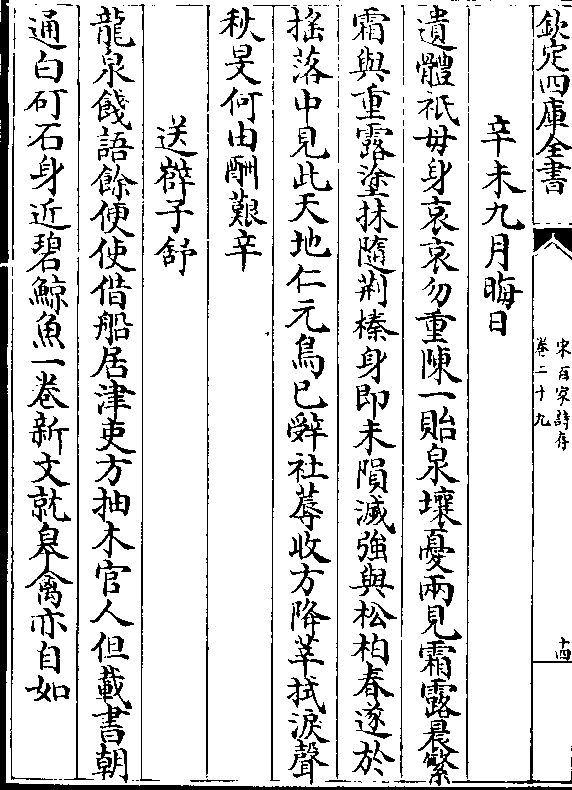 欽定四庫全書
宋百家詩存
卷二十九
十四
辛未九月晦日
遺體祇毋身哀哀勿重陳一貽泉壤憂兩見霜露晨繁
霜與重露塗抹隨荆榛身即未隕滅強與松柏春遂於
搖落中見此天地仁元鳥已辤社蓐收方降莘拭淚聲
秋旻何由酬艱辛
送薛子舒
龍泉餞語餘便使借船居津吏方抽木官人但載書朝
通白矴石身近碧鯨魚一卷新文就皐禽亦自如